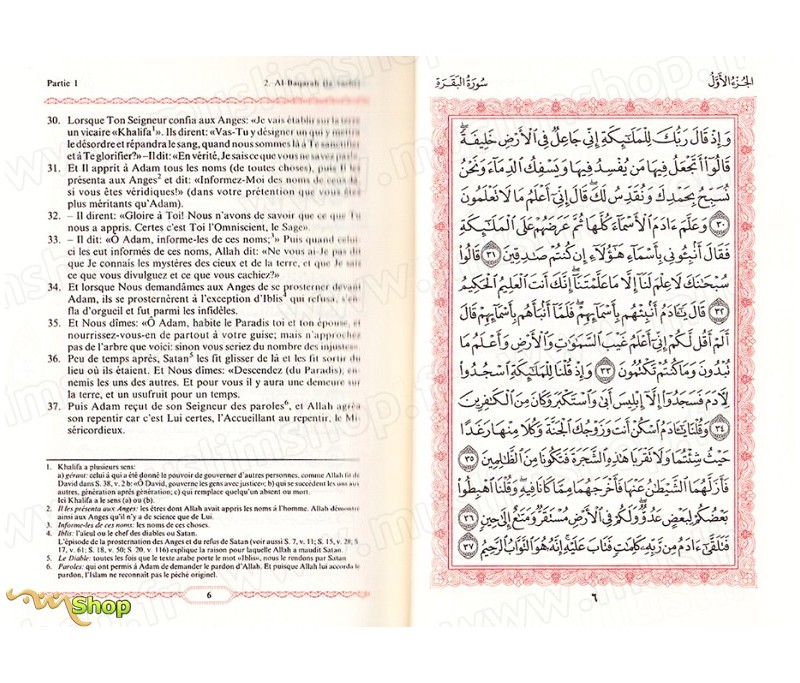 Partie 1
2. Al-Baqarah (la vache)
30. Lorsque Ton Seigneur confia aux Anges: «Je vais établir sur la terre
un vicaire «Khalifa¹». Ils dirent: «Vas-Tu y désigner un qui y mettra
le désordre et répandra le sang, quand nous sommes là à Te sanctifier
et à Te glorifier?» – Il dit: «En vérité, Je sais ce que vous ne savez pas!».
31. Et Il apprit à Adam tous les noms (de toutes choses), puis Il les
présenta aux Anges² et dit: «Informez-Moi des noms de ceux-là,
si vous êtes véridiques!» (dans votre prétention que vous êtes
plus méritants qu'Adam).
32. – Il dirent: «Gloire à Toi! Nous n'avons de savoir que ce que Tu
nous a appris. Certes c'est Toi l'Omniscient, le Sage».
33. – Il dit: «Ô Adam, informe-les de ces noms;³» Puis quand celui-
ci les eut informés de ces noms, Allah dit: «Ne vous ai-Je pas dit
que Je connais les mystères des cieux et de la terre, et que Je sais
ce que vous divulguez et ce que vous cachiez?»
34. Et lorsque Nous demandâmes aux Anges de se prosterner devant
Adam, ils se prosternèrent à l'exception d'Iblis⁴ qui refusa, s'en-
fla d'orgueil et fut parmi les infidèles.
35. Et Nous dîmes: «Ô Adam, habite le Paradis toi et ton épouse, et
nourrissez-vous-en de partout à votre guise; mais n'approchez
pas de l'arbre que voici: sinon vous seriez du nombre des injustes».
36. Peu de temps après, Satan⁵ les fit glisser de là et les fit sortir du
lieu où ils étaient. Et Nous dîmes: «Descendez (du Paradis), en-
nemis les uns des autres. Et pour vous il y aura une demeure sur
la terre, et un usufruit pour un temps.
37. Puis Adam reçut de son Seigneur des paroles⁶, et Allah agréa
son repentir car c'est Lui certes, l'Accueillant au repentir, le Mi-
séricordieux.
1. Khalifa a plusieurs sens:
a) gérant: celui qui a été donné le pouvoir de gouverner d'autres personnes, comme Allah fit de
David dans S. 38, v. 2 b: «Ô David, gouverne les gens avec justice»; b) qui se succèdent les uns aux
autres, génération après génération; c) qui remplace quelqu'un absent ou mort.
Ici Khalifa a le sens (a) ou (b).
2. Il les présenta aux Anges: les êtres dont Allah avait appris les noms à l'homme. Allah démontre
ainsi aux Anges qu'il n'y a de science que de Lui.
3. Informe-les de ces noms: les noms de ces choses.
4. Iblis: l'aïeul ou le chef des diables ou Satan.
L'épisode de la prosternation des Anges et du refus de Satan (voir aussi S. 7, v. 11; S. 15, v. 28; S.
17, v. 61; S. 18, v. 50; S. 20. v. 116) explique la raison pour laquelle Allah a maudit Satan.
5. Le Diable: toutes les fois que le texte arabe porte le mot «Iblis», nous le rendons par Satan.
6. Paroles: qui ont permis à Adam de demander le pardon d'Allah. Et puisque Allah lui accorda le
pardon, l'Islam ne reconnaît pas le péché originel.
6
الجزء الأول
سورة البقرة
وَإِذْ قَالَ رَبُّكَ لِلْمَلَٰٓئِكَةِ إِنِّى جَاعِلٌ فِى ٱلْأَرْضِ خَلِيفَةً
قَالُوٓا۟ أَتَجْعَلُ فِيهَا مَن يُفْسِدُ فِيهَا وَيَسْفِكُ ٱلدِّمَآءَ وَنَحْنُ
نُسَبِّحُ بِحَمْدِكَ وَنُقَدِّسُ لَكَ قَالَ إِنِّىٓ أَعْلَمُ مَا لَا تَعْلَمُونَ
٣٠ وَعَلَّمَ ءَادَمَ ٱلْأَسْمَآءَ كُلَّهَا ثُمَّ عَرَضَهُمْ عَلَى ٱلْمَلَٰٓئِكَةِ
فَقَالَ أَنۢبِـُٔونِى بِأَسْمَآءِ هَٰٓؤُلَآءِ إِن كُنتُمْ صَٰدِقِينَ ٣١ قَالُوا۟
سُبْحَٰنَكَ لَا عِلْمَ لَنَآ إِلَّا مَا عَلَّمْتَنَآ إِنَّكَ أَنتَ ٱلْعَلِيمُ ٱلْحَكِيمُ
٣٢ قَالَ يَٰٓـَٔادَمُ أَنۢبِئْهُم بِأَسْمَآئِهِمْ فَلَمَّآ أَنۢبَأَهُم بِأَسْمَآئِهِمْ قَالَ
أَلَمْ أَقُل لَّكُمْ إِنِّىٓ أَعْلَمُ غَيْبَ ٱلسَّمَٰوَٰتِ وَٱلْأَرْضِ وَأَعْلَمُ مَا
تُبْدُونَ وَمَا كُنتُمْ تَكْتُمُونَ ٣٣ وَإِذْ قُلْنَا لِلْمَلَٰٓئِكَةِ ٱسْجُدُوا۟
لِءَادَمَ فَسَجَدُوٓا۟ إِلَّآ إِبْلِيسَ أَبَىٰ وَٱسْتَكْبَرَ وَكَانَ مِنَ ٱلْكَٰفِرِينَ
٣٤ وَقُلْنَا يَٰٓـَٔادَمُ ٱسْكُنْ أَنتَ وَزَوْجُكَ ٱلْجَنَّةَ وَكُلَا مِنْهَا رَغَدًا
حَيْثُ شِئْتُمَا وَلَا تَقْرَبَا هَٰذِهِ ٱلشَّجَرَةَ فَتَكُونَا مِنَ ٱلظَّٰلِمِينَ ٣٥
فَأَزَلَّهُمَا ٱلشَّيْطَٰنُ عَنْهَا فَأَخْرَجَهُمَا مِمَّا كَانَا فِيهِ وَقُلْنَا ٱهْبِطُوا۟
بَعْضُكُمْ لِبَعْضٍ عَدُوٌّ وَلَكُمْ فِى ٱلْأَرْضِ مُسْتَقَرٌّ وَمَتَٰعٌ إِلَىٰ حِينٍ ٣٦
فَتَلَقَّىٰٓ ءَادَمُ مِن رَّبِّهِۦ كَلِمَٰتٍ فَتَابَ عَلَيْهِ إِنَّهُۥ هُوَ ٱلتَّوَّابُ ٱلرَّحِيمُ ٣٧
٦
Shop
www.muslimshop.fr